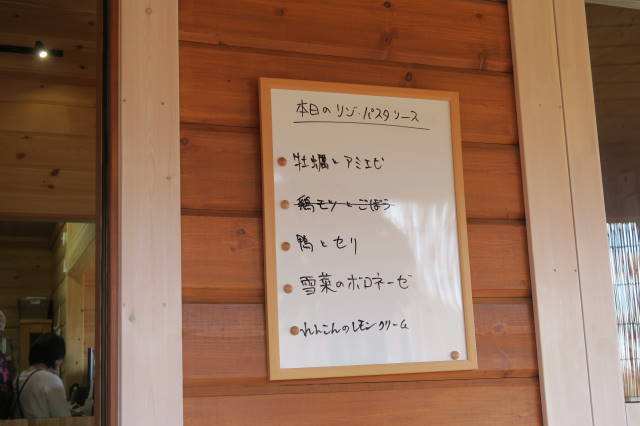 本日のリゾ・パスタソース
牡蠣とアミエビ
鶏モツとごぼう
鴨とセリ
雪菜のボロネーゼ
れんこんのレモンクリーム